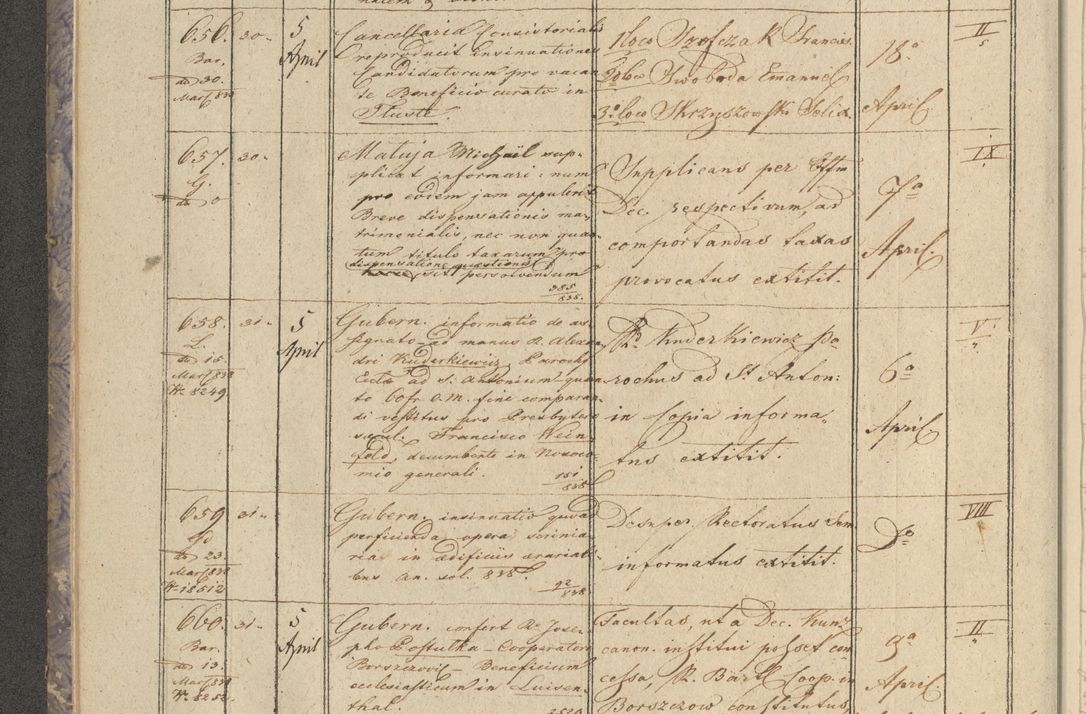 656. 30.
Bar.
dto 30.
Mart 838
5
April
Cancellaria Consistorialis
reproducit Insinuationes
Candidatorum pro vacan
te Beneficio curato in
Tluste.
1 loco Szofczak Francis.
2do loco Swoboda Emanuel
3o loco Skrzyszowski Felix.
18a
April
II
5
657. 30.
G.
dto 0
Matuja Michaël sup-
plicat informari: num
pro eodem jam appulerit
Breve dispensationis ma-
trimonialis, nec non quan
tum titulo taxarum pro
dispensatione quaestionis
sit persolvendum
385
838.
Supplicans per Offm
Dec. respectivum, ad
comportandas taxas
provocatus extitit.
7a
April.
IX
658. 31.
L.
dto 15.
Mart 838
Nr. 8249
5
April
Gubern. informatio de as-
signato ad manus R. Alexan
dri Kuderkiewicz Parochi
Eccl. ad S. Antonium quan
to 60 fr. C.M. fine comparan
di vestitus pro Presbytero
saecul. Francisco Wein
feld, decumbente in Nosoco
mio generali.
151
838
Rd. Kuderkiewicz Pa-
rochus ad St. Anton:
in Copia informa-
tus extitit.
6a
April.
V.
659 31.
dto 23.
Mart 838
Nr 18512
Gubern. insinuatio quoad
perficienda opera scrinia
ria in aedificiis aerariali-
bus an. sol. 838.
92
838
Desuper Rectoratus Sem
informatus extitit.
Do
VIII
660. 31.
Bar.
dto 13.
Mart 838
Nr. 8252.
5
April
Gubern. confert Rd. Jose-
pho Postulka Cooperatori
Borszczovii Beneficium
ecclesiasticum in Luisen-
thal.
Facultas, ut a Dec. Kunz
canon. institui posset con
cessa, R. Bark Coop. in
Borszczow constitutus
9a
April.
II